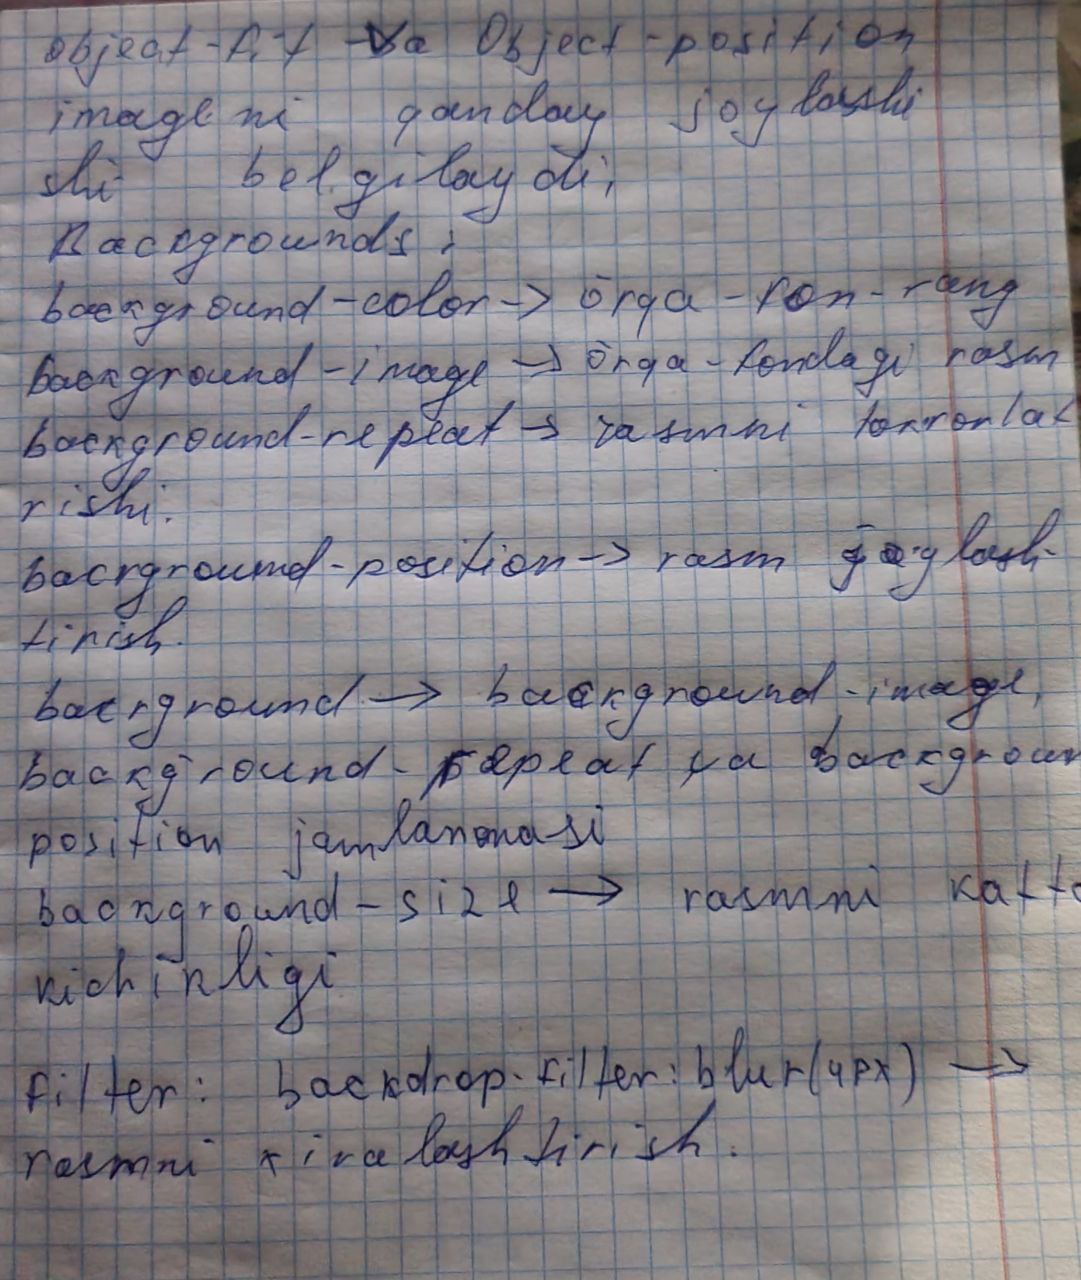 object-fit va Object-position
imageni qanday joylashi
shi belgilaydi,
Backgrounds;
background-color → orqa-fon-rang
background-image → orqa-fondagi rasm
background-repeat → rasmni takrorlat
rishi.
background-position → rasm joylash-
tirish.
background → background-image,
background-repeat va backgroun
position jamlanmasi
background-size → rasmni katta
kichikligi
filter: backdrop-filter:blur(4px) →
rasmni xiralashtirish.